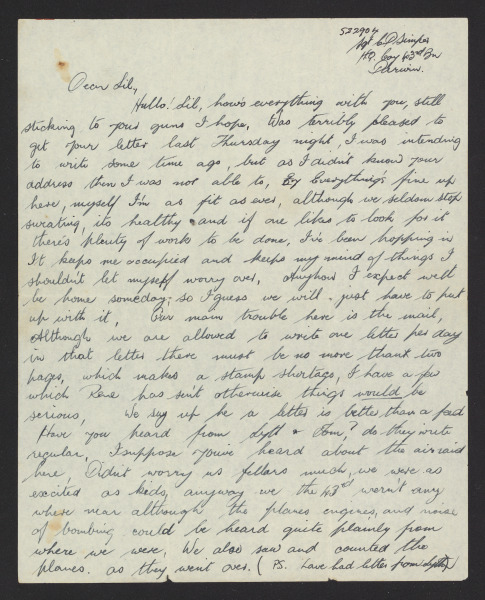 S22904
Sgt C D Simper
H.Q. Coy 43rd Bn
Darwin.
Dear Lil,
Hullo! Lil, how's everything with you, still
sticking to your guns I hope, Was terribly pleased to
get your letter last Thursday night, I was intending
to write some time ago, but as I didn't know your
address then I was not able to, Everything's fine up
here, myself I'm as fit as ever, although we seldom stop
sweating, its healthy and if one likes to look for it
there's plenty of work to be done, I've been hopping in
It keeps me occupied and keeps my mind of things I
shouldn't let myself worry over, Anyhow I expect we'll
be home someday; so I guess we will just have to put
up with it, Our main trouble here is the mail,
Although we are allowed to write one letter per day
in that letter there must be no more thank two
pages, which makes a stamp shortage, I have a few
which Rene has sent otherwise things would be
serious, We sug up he a letter is better than a feed
Have you heard from Syll & Tom? do they write
regular, I suppose you've heard about the air raid
here Didn't worry us fellers much, we were as
excited as kids, anyway we the 43rd weren't any
where near although the planes engines, and noise
of bombing could be heard quite plainly from
where we were, We also saw and counted the
planes. as they went over. (PS. have had letter from Syll)